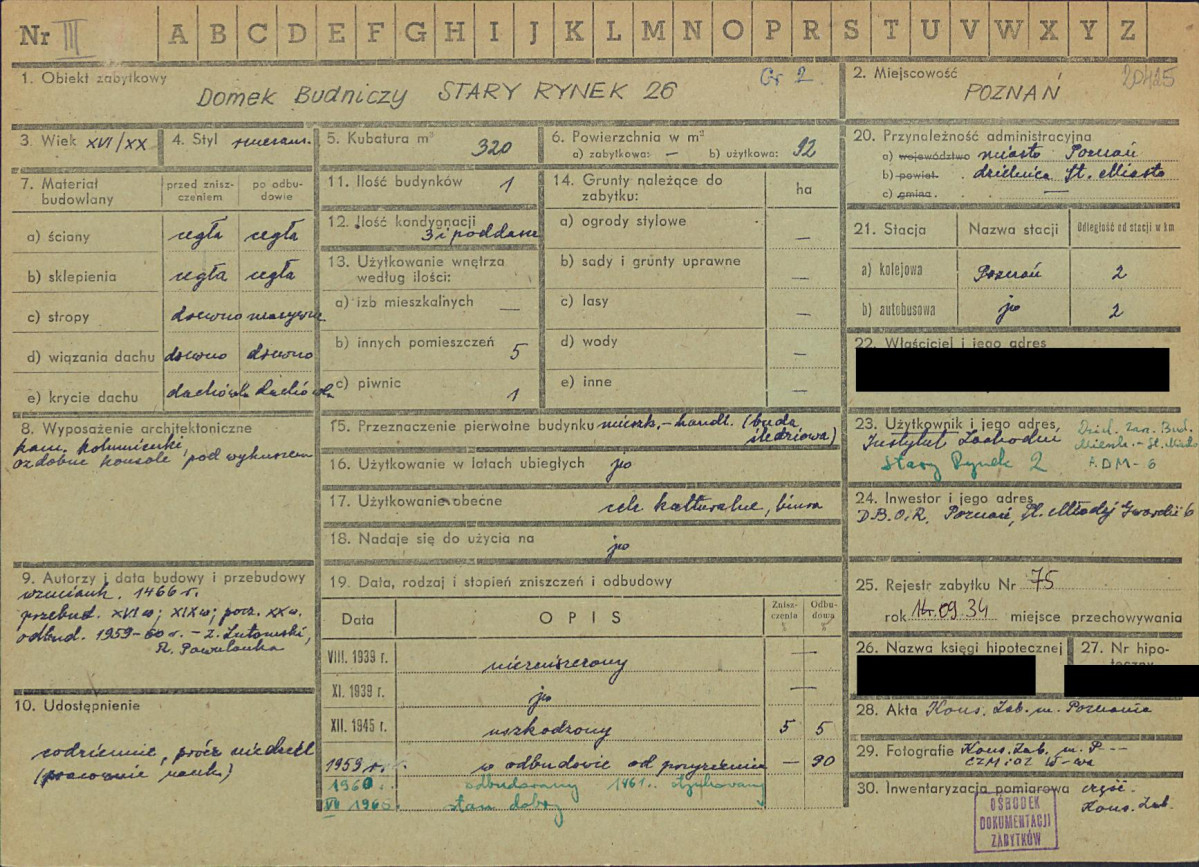 Nr III A B C D E F G H I J K L M N O P R S T U V W X Y Z
1. Obiekt zabytkowy Gr 2
DOMEK BUDNICZY STARY RYNEK 26
2. Miejscowość 20425
POZNAŃ
3. Wiek XVI/XX
4. Styl
5. Kubatura m³ 320
6. Powierzchnia w m²
a) zabytkowa: — b) użytkowa: 92
7. Materiał budowlany
przed znisz-
czeniem
po odbu-
dowie
a) ściany cegła cegła
b) sklepienia cegła cegła
c) stropy drewno masywne
d) wiązania dachu drewno drewno
e) krycie dachu dachówka dachówka
8. Wyposażenie architektoniczne
kam. kolumienki,
ozdobne konsole pod wykuszem
9. Autorzy i data budowy i przebudowy
wzmiank. 1466 r.
przebud. XVI w; XIX w; pocz. XX w.
odbud. 1959-60 r. - Z. Lutomski,
R. Pawulanka
10. Udostępnienie
codziennie, prócz niedziel
(pracownie nauk.)
11. Ilość budynków 1
12. Ilość kondygnacji
3 i poddasze
13. Użytkowanie wnętrza
według ilości:
a) izb mieszkalnych —
b) innych pomieszczeń 5
c) piwnic 1
14. Grunty należące do
zabytku: ha
a) ogrody stylowe —
b) sady i grunty uprawne —
c) lasy —
d) wody —
e) inne —
15. Przeznaczenie pierwotne budynku mieszk.-handl. (buda
śledziowa)
16. Użytkowanie w latach ubiegłych jw
17. Użytkowanie obecne cele kulturalne, biura
18. Nadaje się do użycia na jw
19. Data, rodzaj i stopień zniszczeń i odbudowy
Data OPIS Znisz-
czenia Odbu-
dowa
VIII. 1939 r. niezniszczony —
XI. 1939 r. jw —
XII. 1945 r. uszkodzony 5 5
1959 r. w odbudowie od przyziemia — 90
1960 r. odbudowany 1961
VII 1966 stan dobry
20. Przynależność administracyjna
a) województwo miasto Poznań
b) powiat. dzielnica St. Miasto
c) gmina. —
21. Stacja Nazwa stacji Odległość od stacji w km
a) kolejowa Poznań 2
b) autobusowa jw 2
22. Właściciel i jego adres
23. Użytkownik i jego adres,
Instytut Zachodni
Stary Rynek 2
ADM-6
24. Inwestor i jego adres
D.B.O.R. Poznań, Pl. Młodej Gwardii 6
25. Rejestr zabytku Nr 75
rok 09.34 miejsce przechowywania
26. Nazwa księgi hipotecznej
27. Nr hipo-
teczny
28. Akta Kons. Zab. m. Poznania
29. Fotografie Kons. Zab. m. P---
CZM i OZ W-wa
30. Inwentaryzacja pomiarowa część.
Kons. Zab.
OŚRODEK
DOKUMENTACJI
ZABYTKÓW